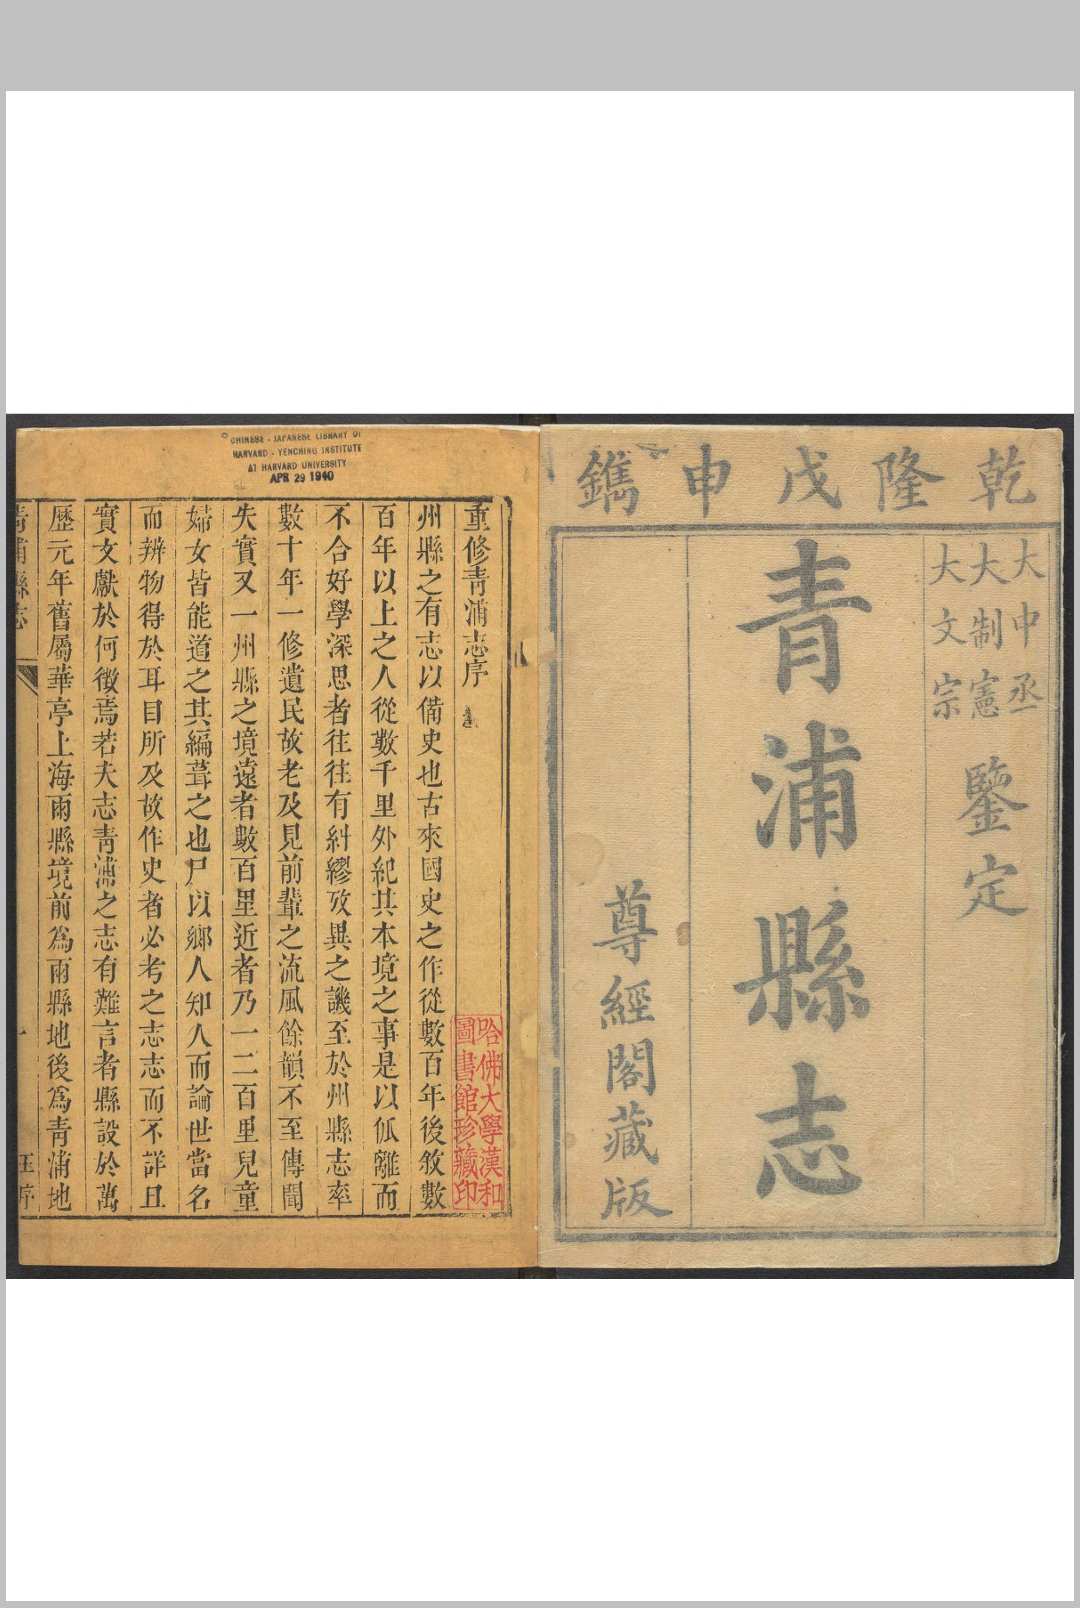 乾隆戊申鐫
大中丞
大制憲
大文宗
鑒定
青浦縣志
尊經閣藏版
CHINESE - JAPANESE LIBRARY OF
HARVARD - YENCHING INSTITUTE
AT HARVARD UNIVERSITY
APR 29 1940
重修青浦志序
哈佛大學漢和
圖書館珍藏印
州縣之有志以備史也古來國史之作從數百年後敘數
百年以上之人從數千里外紀其本境之事是以仳離而
不合好學深思者往往有糾繆攷異之譏至於州縣志率
數十年一修遺民故老及見前輩之流風餘韻不至傳聞
失實又一州縣之境遠者數百里近者乃一二百里兒童
婦女皆能道之其編葺之也尸以鄉人知人而論世當名
而辨物得於耳目所及故作史者必考之志志而不詳且
實文獻於何徵焉若夫志青浦之志有難言者縣設於萬
歷元年舊屬華亭上海兩縣境前爲兩縣地後爲青浦地
青浦縣志
一